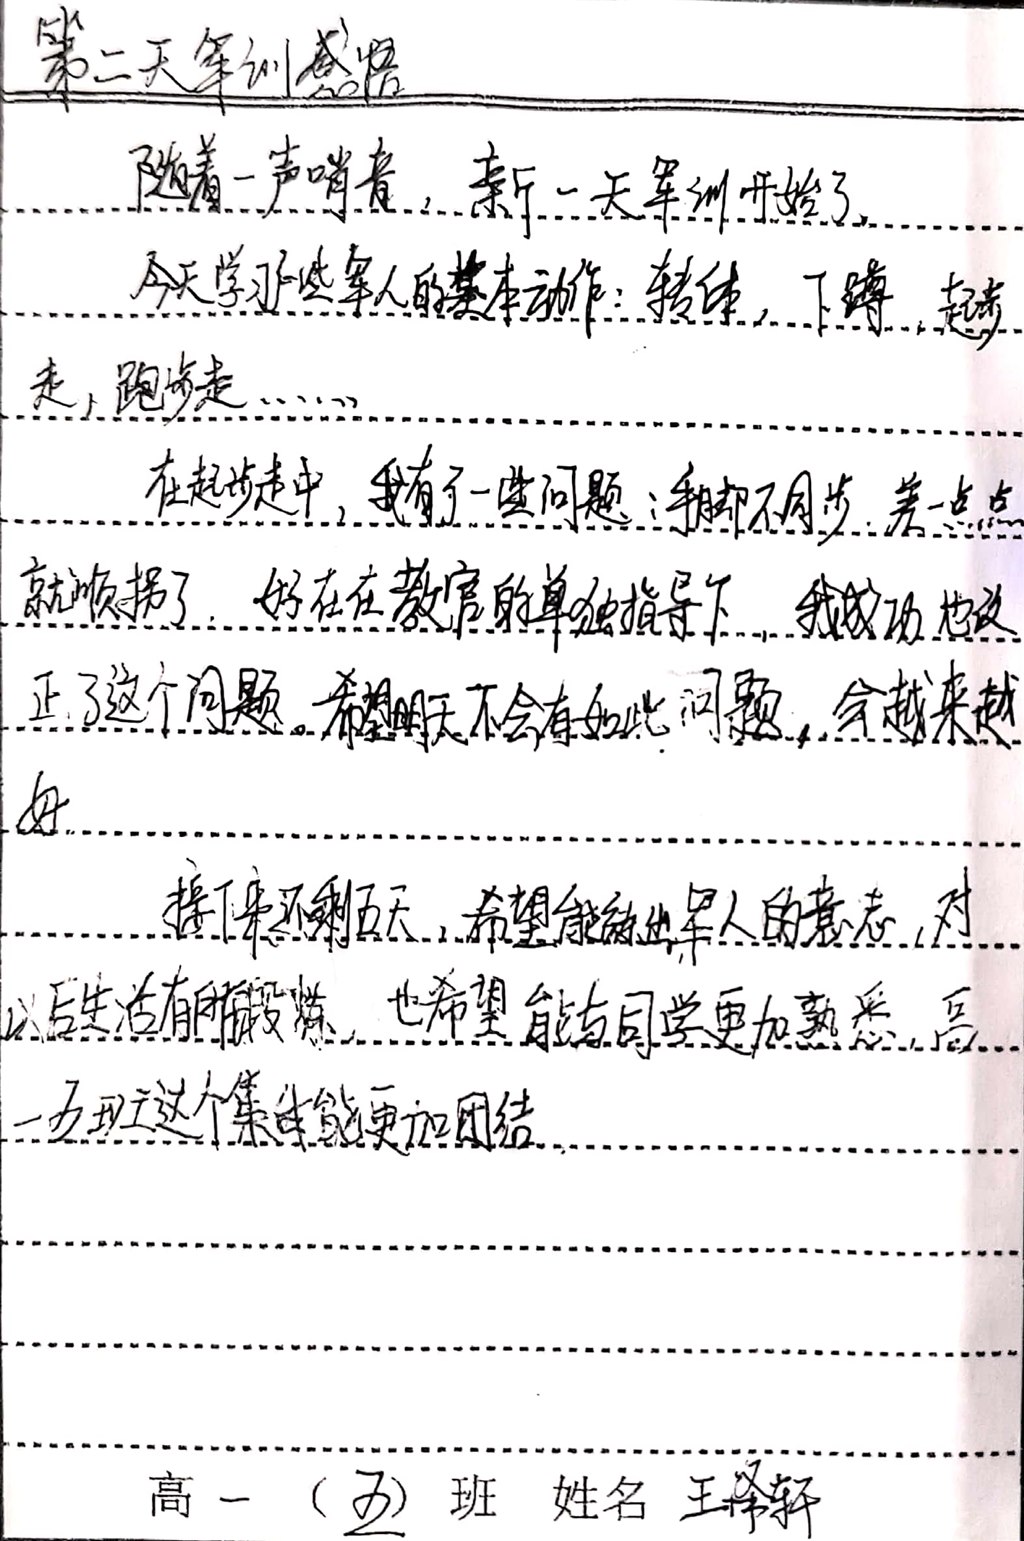 第二天军训感悟
随着一声哨音，新一天军训开始了。
今天学习了些军人的基本动作：转体，下蹲，起步
走，跑步走……
在起步走中，我有了一些问题：手脚不同步，差一点点
就顺拐了。好在在教官的单独指导下，我成功地改
正了这个问题。希望明天不会有如此问题，会越来越
好。
接下来还剩五天，希望能练出军人的意志，对
以后生活有所锻炼，也希望能与同学更加熟悉，高
一五班这个集体能更加团结。
高一（五）班 姓名 王泽轩